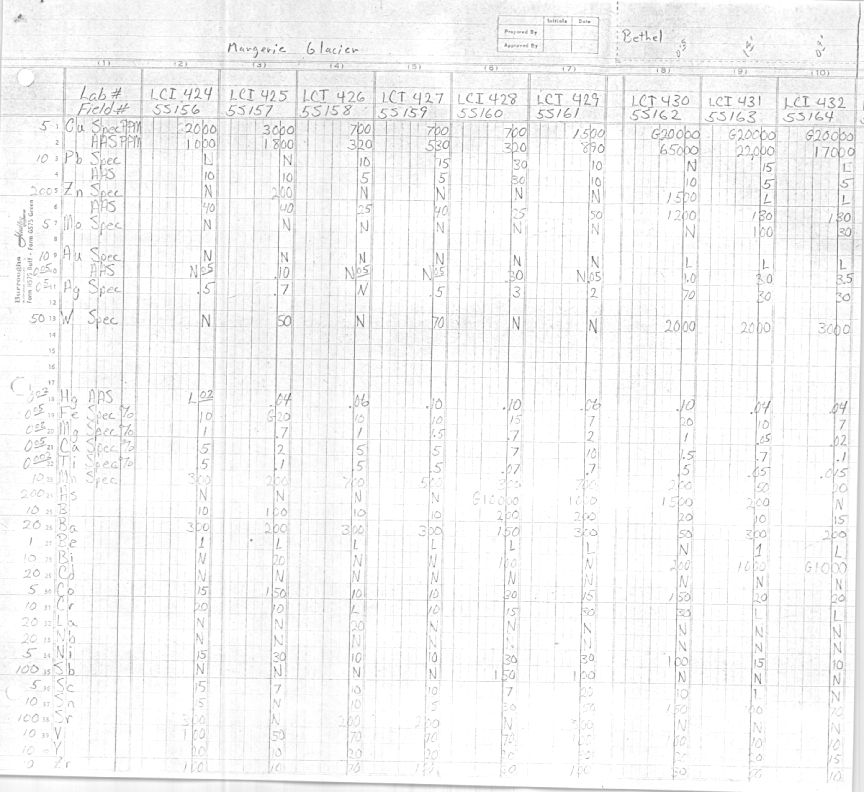 Initials Date
Prepared By
Approved By
Margerie Glacier
Bethel
(1) (2) (3) (4) (5) (6) (7) (8) (9) (10)
Lab # LCI 424 LCI 425 LCI 426 LCI 427 LCI 428 LCI 429 LCI 430 LCI 431 LCI 432
Field # 55156 55157 55158 55159 55160 55161 55162 55163 55164
5 1 Cu Spec PPM 2000 3000 700 700 700 1500 G20000 G20000 G20000
2 AAS PPM 1000 1800 320 530 320 890 65000 22,000 17000
10 3 Pb Spec L N 10 15 30 10 N 15 L
4 AAS 10 10 5 5 30 10 10 5 5
200 5 Zn Spec N 200 N N N N 1500 L L
6 AAS 40 40 25 40 25 50 1200 130
5 7 Mo Spec N N N N N N N 100 30
8
10 9 Au Spec N N N N N N L L L
.05 10 AAS N.05 .10 N.05 N.05 .30 N.05 1.0 3.0 3.5
11 Ag Spec .5 .7 N .5 3 2 70 30 30
12
50 13 W Spec N 50 N 70 N N 2000 2000 3000
14
15
16
17
18 Hg AAS L.02 .04 .06 .10 .10 .06 .10 .04 .04
.05 19 Fe Spec % 10 G20 10 10 15 7 20 10 7
20 Mg Spec % 1 .7 1 1.5 .7 2 1 .05 .02
.05 21 Ca Spec % 5 2 5 5 7 10 1.5 .7 .1
.002 22 Ti Spec % .5 .1 .5 .5 .07 .7 .5 .05 .015
10 Mn Spec 300 200 700 500 300 700 200 50 20
200 24 As N N N N G10000 1000 1500 200 N
10 25 B 10 100 10 10 200 200 20 10 15
20 26 Ba 300 200 300 300 150 300 50 300 200
1 27 Be 1 L L L L L N 1 L
10 Bi N 20 N N 100 N 200 1000 G1000
20 29 Cd N N N N N N N N N
5 30 Co 15 150 10 10 30 15 150 20 20
10 31 Cr 20 10 L 10 15 30 30 L L
20 32 La N N 20 N N N N N N
20 33 Nb N N N N N N N N N
5 34 Ni 15 30 10 10 30 30 100 15 10
100 35 Sb N N N N 150 100 N N N
5 36 Sc 15 7 10 10 7 20 10 L N
10 37 Sn 5 N 5 30
100 38 Sr 300 N 200 200 N 300 N N N
10 39 V 100 50 70 70 70 10
10 Y 10 20 20 15
Zr 100 10 70 10
Burroughs
Form H575 Buff - Form G575 Green